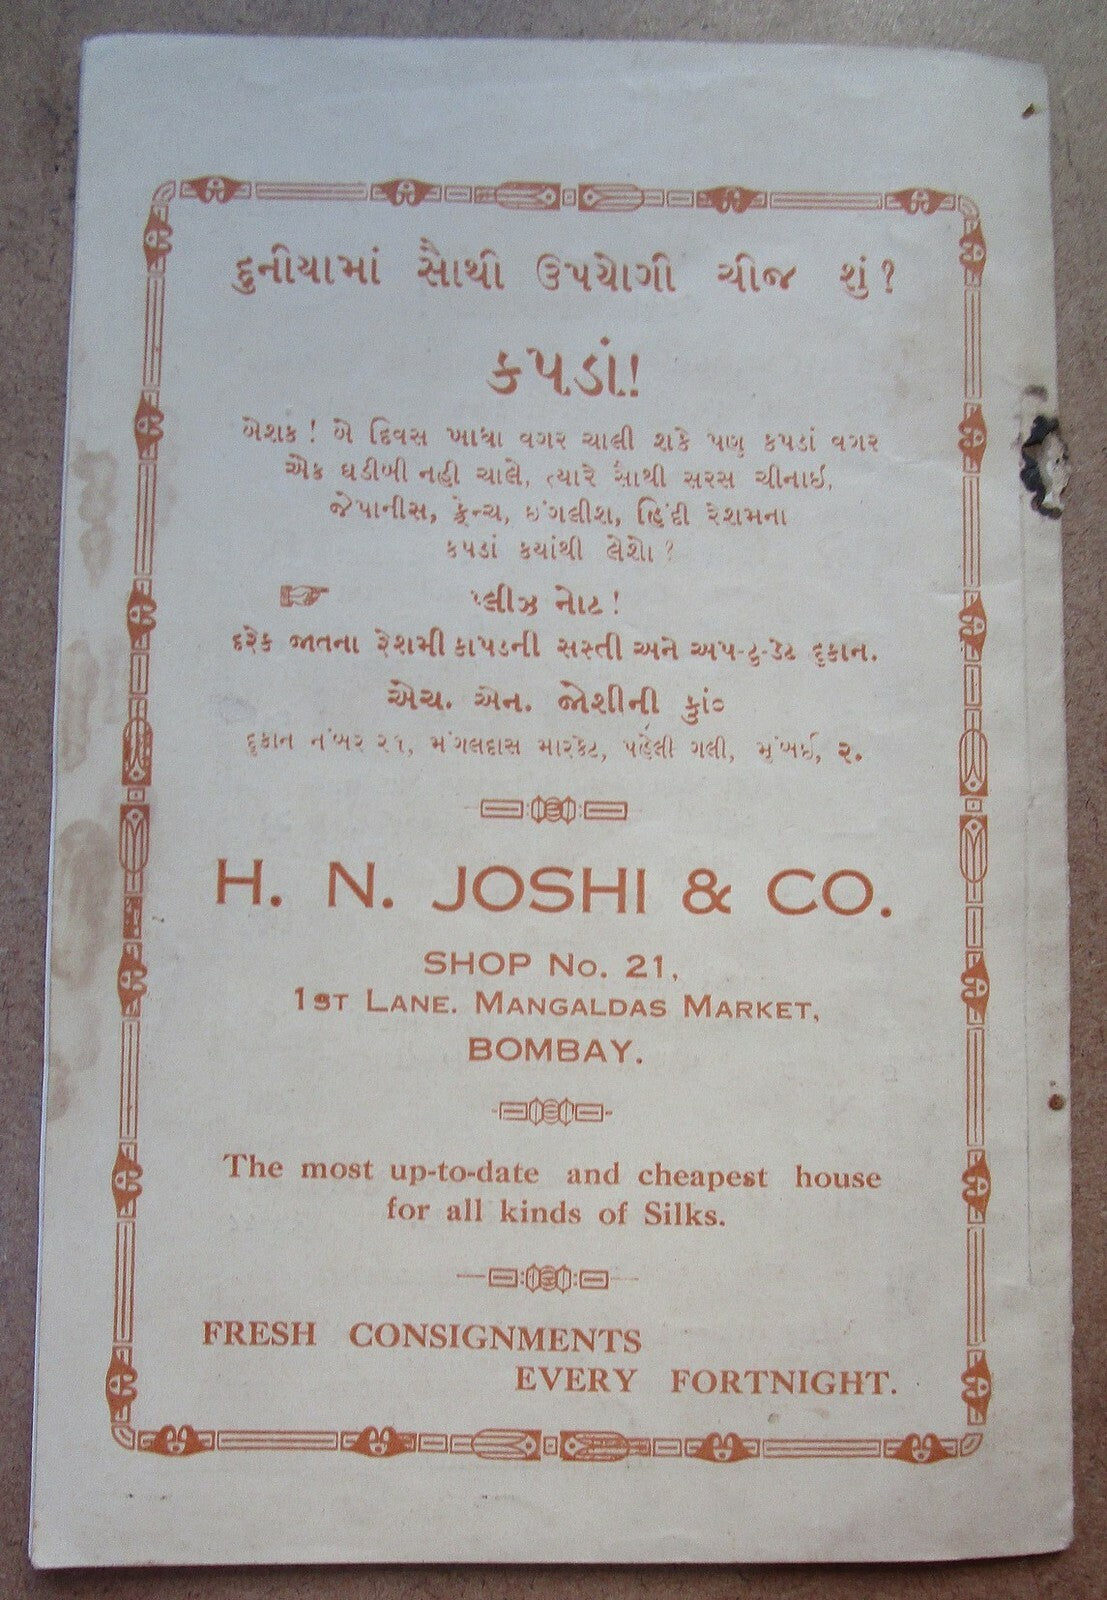 દુનીયામાં સૌથી ઉપયોગી ચીજ શું?
કપડાં!
બેશક! બે દિવસ ખાધા વગર ચાલી શકે પણ કપડાં વગર
એક ઘડીબી નહી ચાલે, ત્યારે સૌથી સરસ ચીનાઇ,
જેપાનીસ, ફ્રેન્ચ, ઇંગલીશ, હિંદી રેશમના
કપડાં કયાંથી લેશો?
પ્લીઝ નોટ!
દરેક જાતના રેશમી કાપડની સસ્તી અને અપ-ટુ-ડેટ દુકાન.
એચ. એન. જોશીની કુાં૦
દુકાન નંબર ૨૧, મંગલદાસ મારકેટ, પહેલી ગલી, મુંબઈ, ૨.
H. N. JOSHI & CO.
SHOP No. 21,
1ST LANE. MANGALDAS MARKET,
BOMBAY.
The most up-to-date and cheapest house
for all kinds of Silks.
FRESH CONSIGNMENTS
EVERY FORTNIGHT.